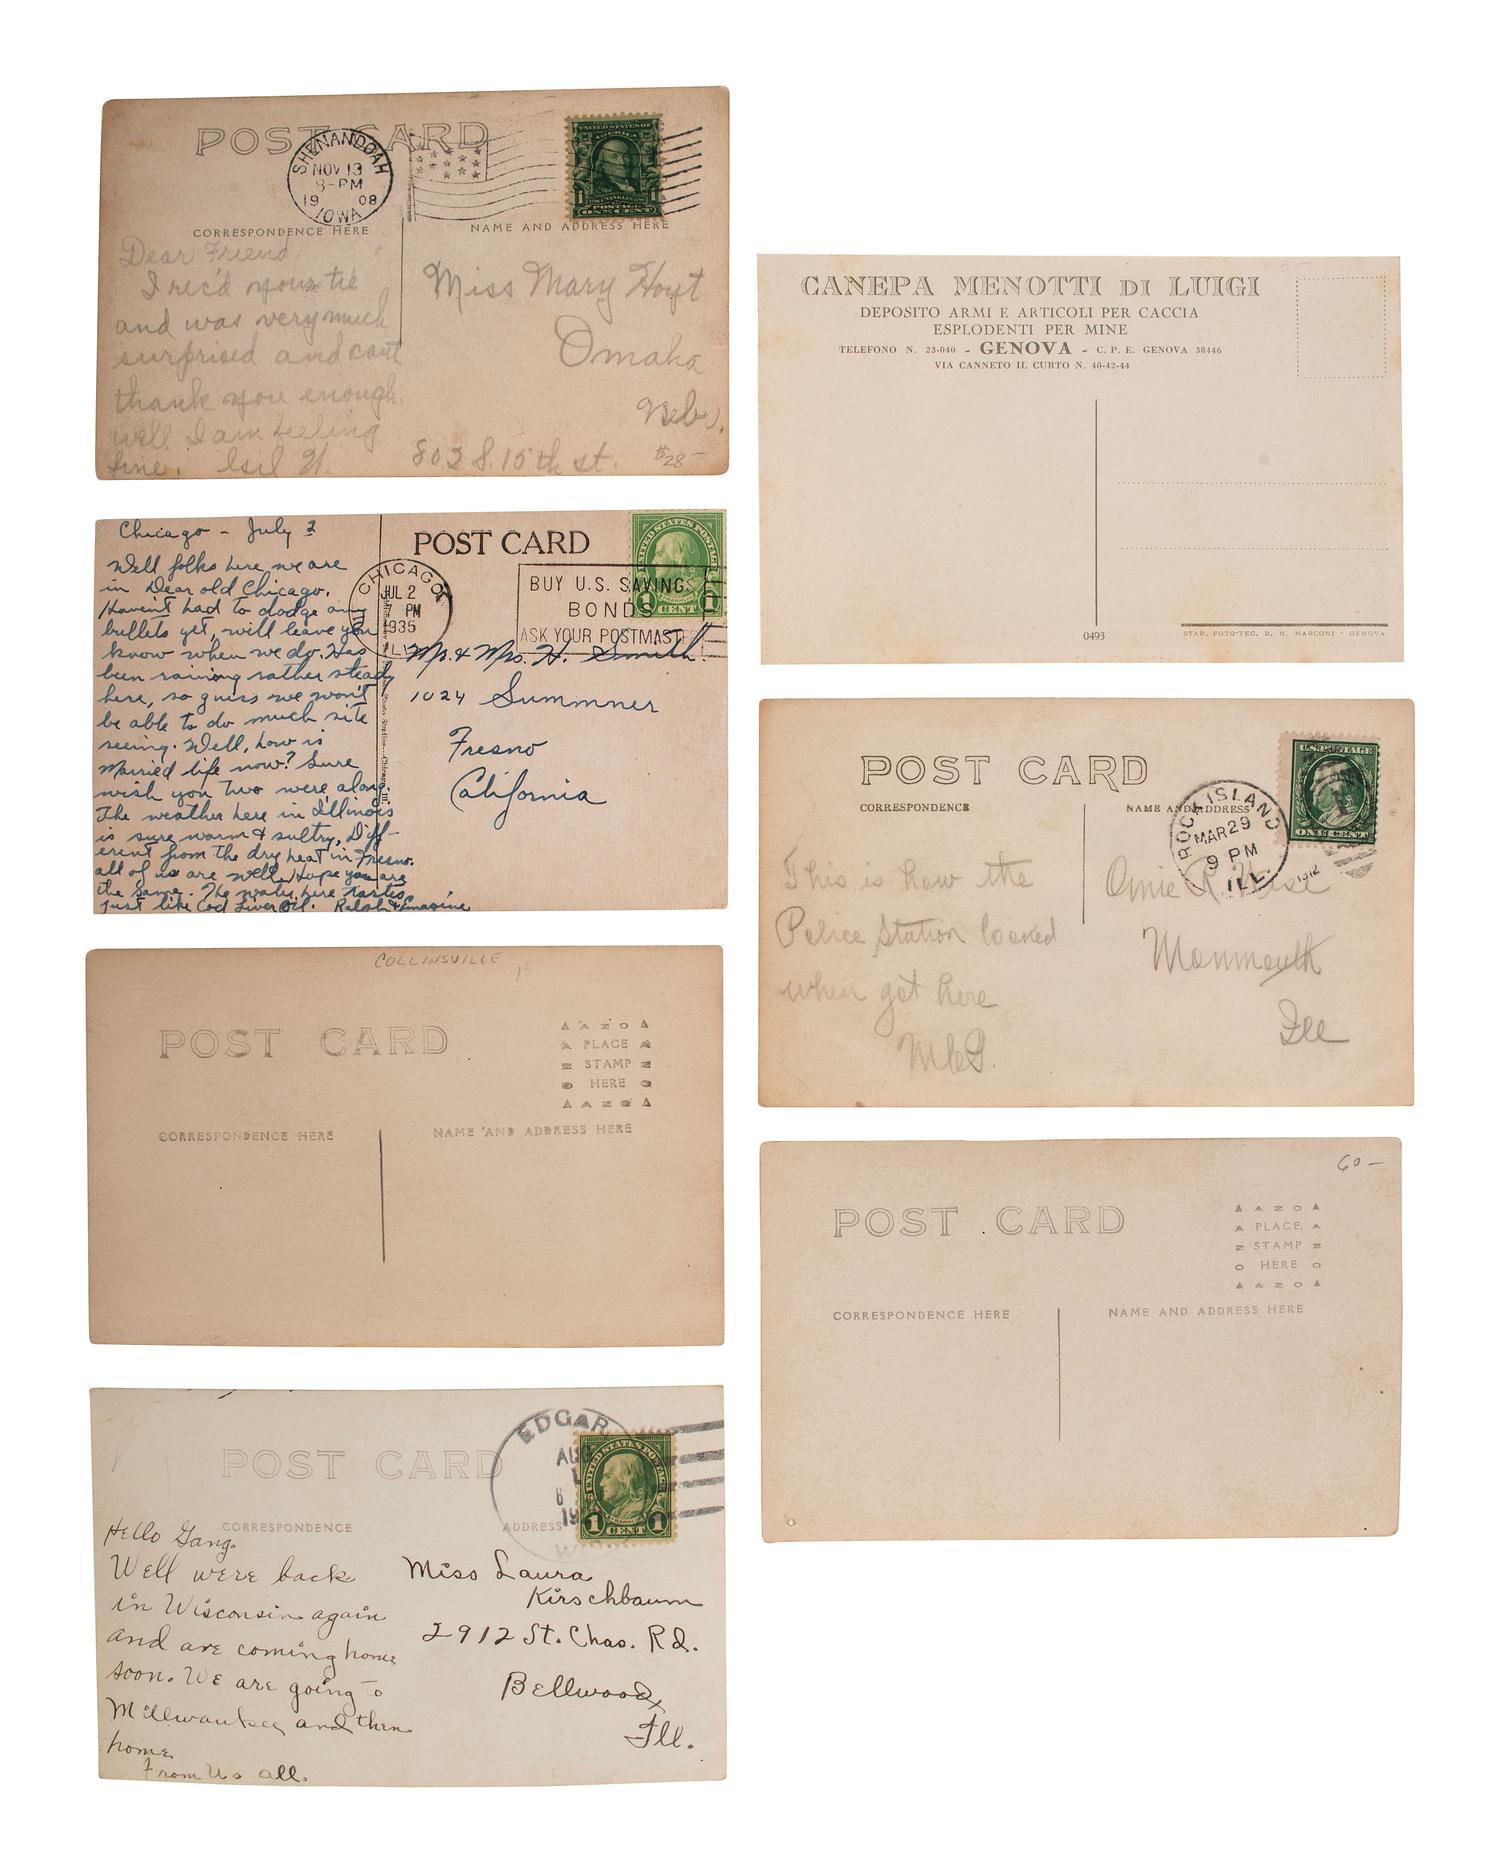 POST CARD
SHENANDOAH
NOV 13
8-PM
19 08
IOWA
UNITED STATES OF
AMERICA
1 1
POSTAGE
ONE CENT
CORRESPONDENCE HERE
NAME AND ADDRESS HERE
Dear Friend.
I rec'd your tie
and was very much
surprised and cant
thank you enough.
well I am feeling
fine.
Miss Mary Hoyt
Omaha
Nebr.
802 S. 15th st.
$28-
Chicago - July 2
Well folks here we are
in Dear old Chicago.
Haven't had to dodge any
bullets yet, will leave you
know when we do. Has
been raining rather steady
here, so guess we won't
be able to do much site
seeing. Well, how is
Married life now? Sure
wish you two were along.
The weather here in Illinois
is sure warm & sultry, Diff-
erent from the dry heat in Fresno.
all of us are well. Hope you are
the same. The water here tastes
just like Cod Liver Oil. Ralph &
POST CARD
CHICAGO
JUL 2
7 PM
1935
ILL.
BUY U.S. SAVINGS
BONDS
ASK YOUR POSTMASTER
UNITED STATES POSTAGE
FRANKLIN
1 CENT 1
Mr. & Mrs. H. Smith.
1024 Summner
Fresno
California
COLLINSVILLE
15
POST CARD
AZO
PLACE
STAMP
HERE
AZO
CORRESPONDENCE HERE
NAME AND ADDRESS HERE
POST CARD
EDGAR
AUG
6
19
WIS
UNITED STATES POSTAGE
FRANKLIN
1 CENT 1
CORRESPONDENCE
ADDRESS
Hello Gang.
Well were back
in Wisconsin again
and are coming home
soon. We are going to
Millwaukee and then
home
From Us all.
Miss Laura
Kirschbaum
2912 St. Chas. Rd.
Bellwood,
Ill.
CANEPA MENOTTI DI LUIGI
DEPOSITO ARMI E ARTICOLI PER CACCIA
ESPLODENTI PER MINE
TELEFONO N. 23-040 - GENOVA - C. P. E. GENOVA 38446
VIA CANNETO IL CURTO N. 40-42-44
0493
STAB. FOTO-TEC. B. N. MARCONI - GENOVA
POST CARD
CORRESPONDENCE
NAME AND ADDRESS
ROCK ISLAND
MAR 29
9 PM
ILL.
1912
U.S. POSTAGE
ONE CENT
This is how the
Police Station looked
when get here
Monmouth
Ill
60-
POST CARD
AZO
PLACE
STAMP
HERE
AZO
CORRESPONDENCE HERE
NAME AND ADDRESS HERE